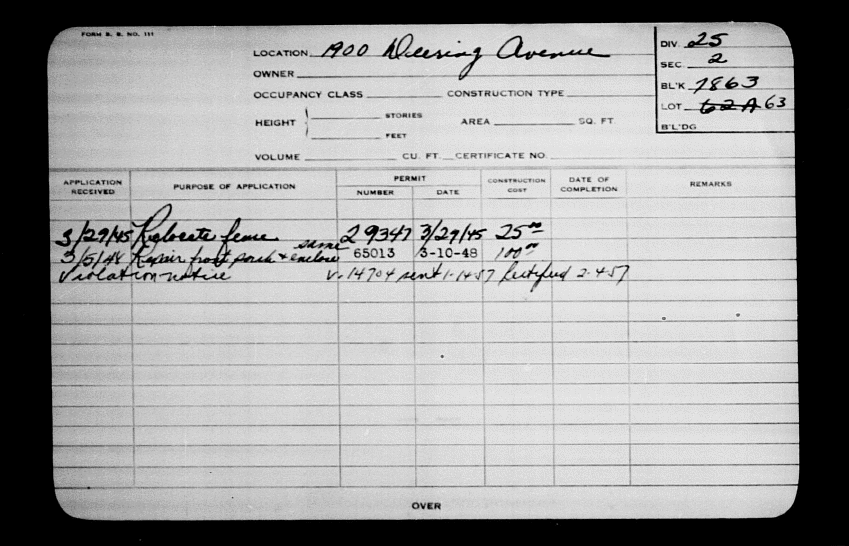 FORM B. B. NO. 111
LOCATION 1900 Deering Avenue
OWNER
OCCUPANCY CLASS CONSTRUCTION TYPE
HEIGHT STORIES FEET AREA SQ. FT.
VOLUME CU. FT. CERTIFICATE NO.
DIV. 25
SEC. 2
BL'K 7863
LOT 62 A 63
B'L'DG
APPLICATION RECEIVED PURPOSE OF APPLICATION PERMIT NUMBER DATE CONSTRUCTION COST DATE OF COMPLETION REMARKS
3/29/45 Relocate fence 29347 3/29/45 25 00
3/5/48 Repair front porch & enclose same 65013 3-10-48 100 00
Violation notice V-14704 sent 1-14-57 Rectified 2-4-57
OVER